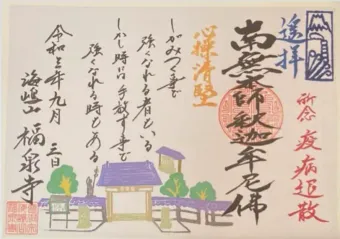 遥拝
祈念 疫病退散
南無本師釈迦牟尼佛
心操清堅
しがみつく事で
強くなれる者もいる
しかし時には手放す事で
強くなれる時もある
令和三年九月三日
海嶋山 福泉寺